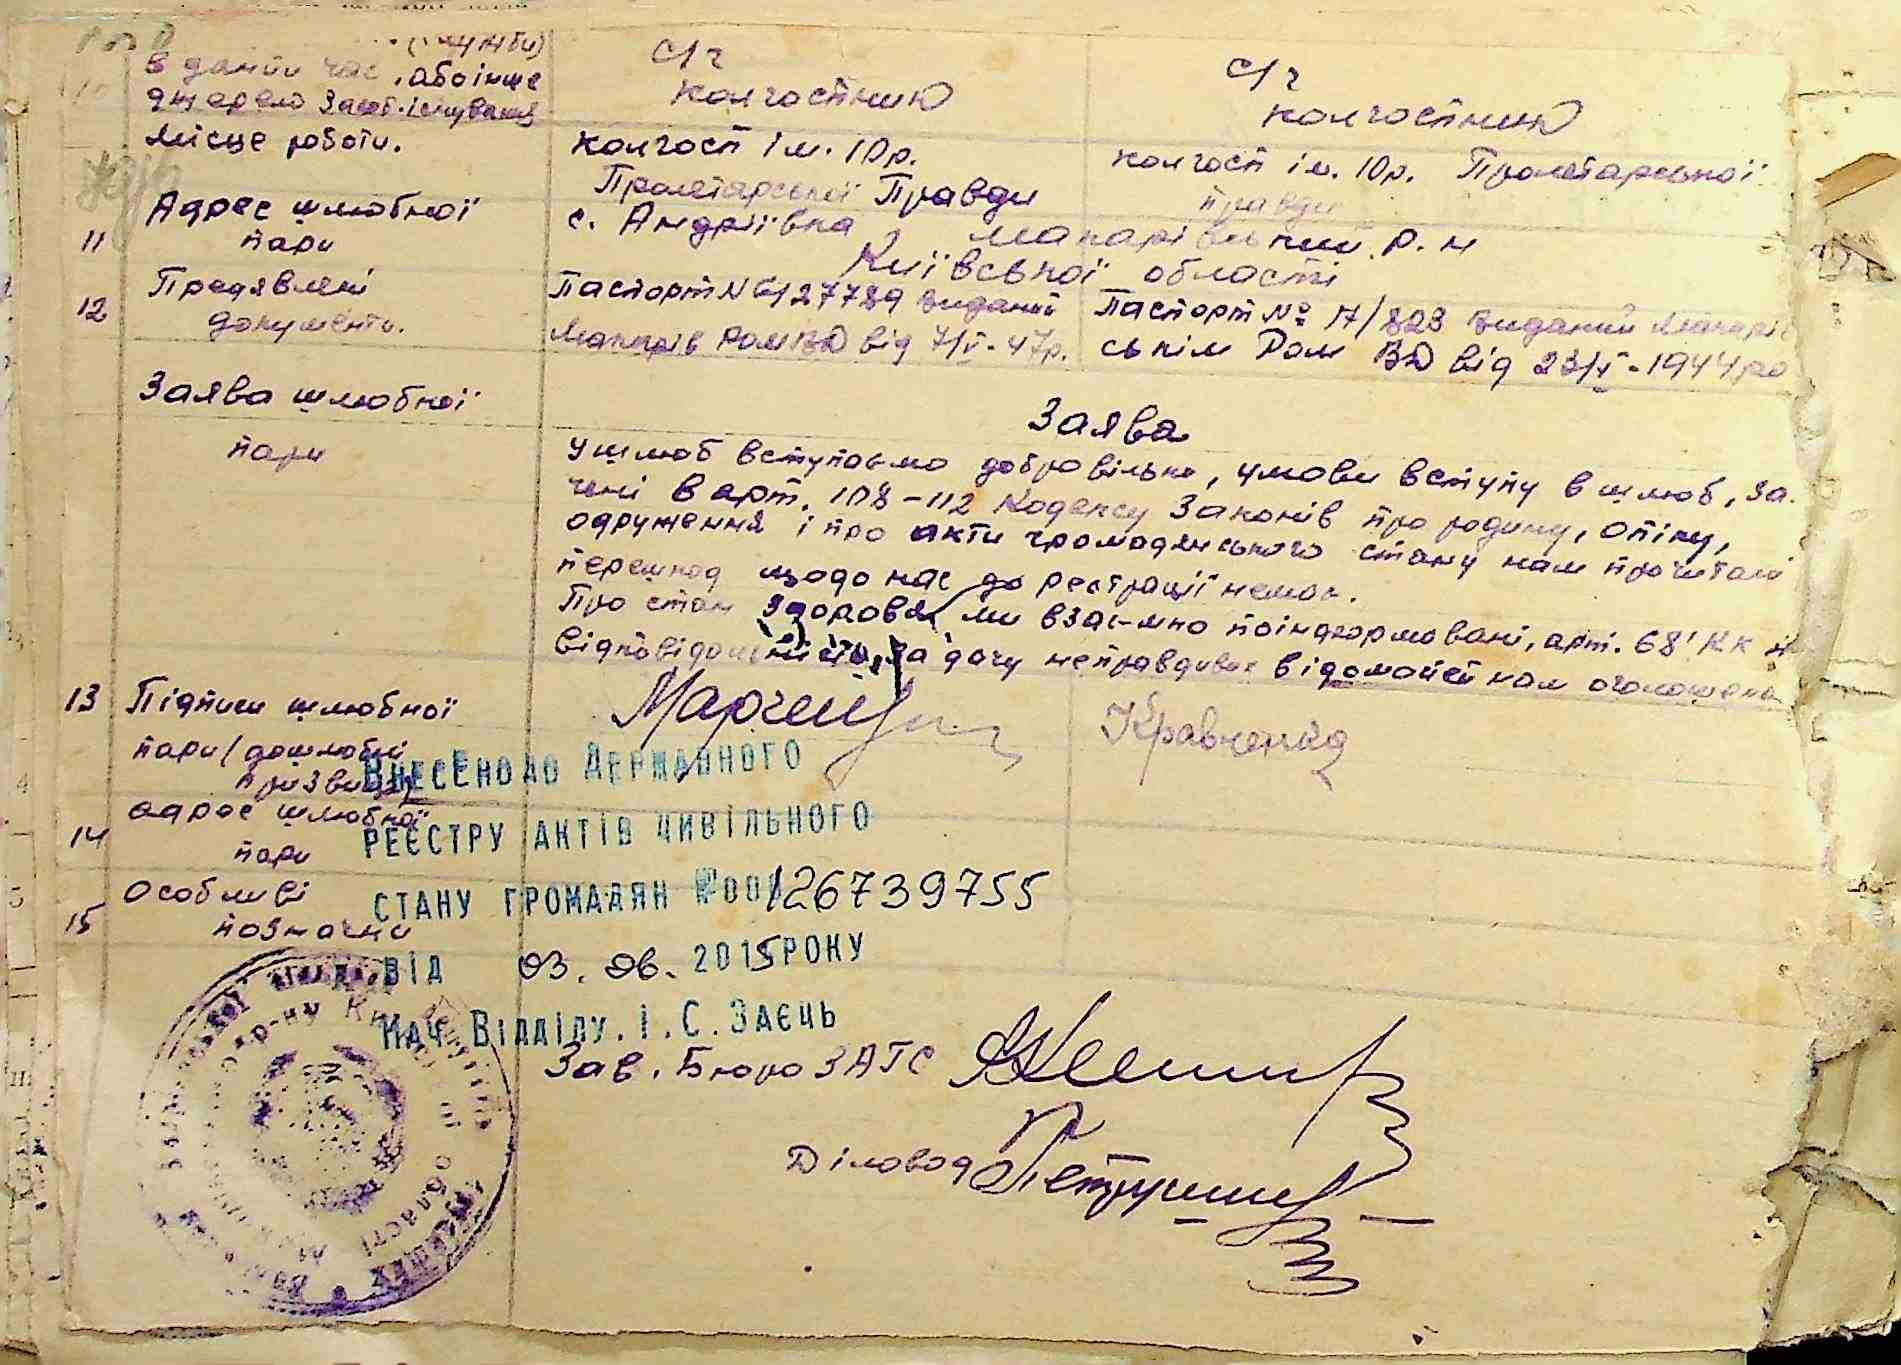 (служби)
в даний час, або інше
джерело засоб. існування
с/г
колгоспник
с/г
колгоспник
Місце роботи.
колгосп ім. 10р.
Пролетарської Правди
колгосп ім. 10р. Пролетарської
правди
11 Адрес шлюбної
пари
с. Андріївка Макарівський р-н
Київської області
12 Предявлені
документи.
Паспорт № 127789 виданий
Макарів РомВД від 7/V-47р.
Паспорт № 17/823 виданий Макарів
ськім Ром ВД від 23/V-1944ро
Заява шлюбної
пари
Заява
У шлюб вступаємо добровільно, умови вступу в шлюб, за.
чені в арт. 108-112 Кодексу Законів про родину, опіку,
одруження і про акти громадянського стану нам прочитані
перешкод щодо нас до реєстрації немає.
Про стан здоровя ми взаємно поінформовані, арт. 68' КК і
відповідальність за дачу неправдивих відомостей нам оголошена
13 Підписи шлюбної
пари/дошлюбні
призвища
Марченко
Кравченко
14 адрес шлюбної
пари
15 Особливі
позначки
Внесено до Державного
реєстру актів цивільного
стану громадян №00126739755
від 03.06.2015 року
Нач. Відділу. І.С. Заєць
Зав. Бюро ЗАГС
Діловод